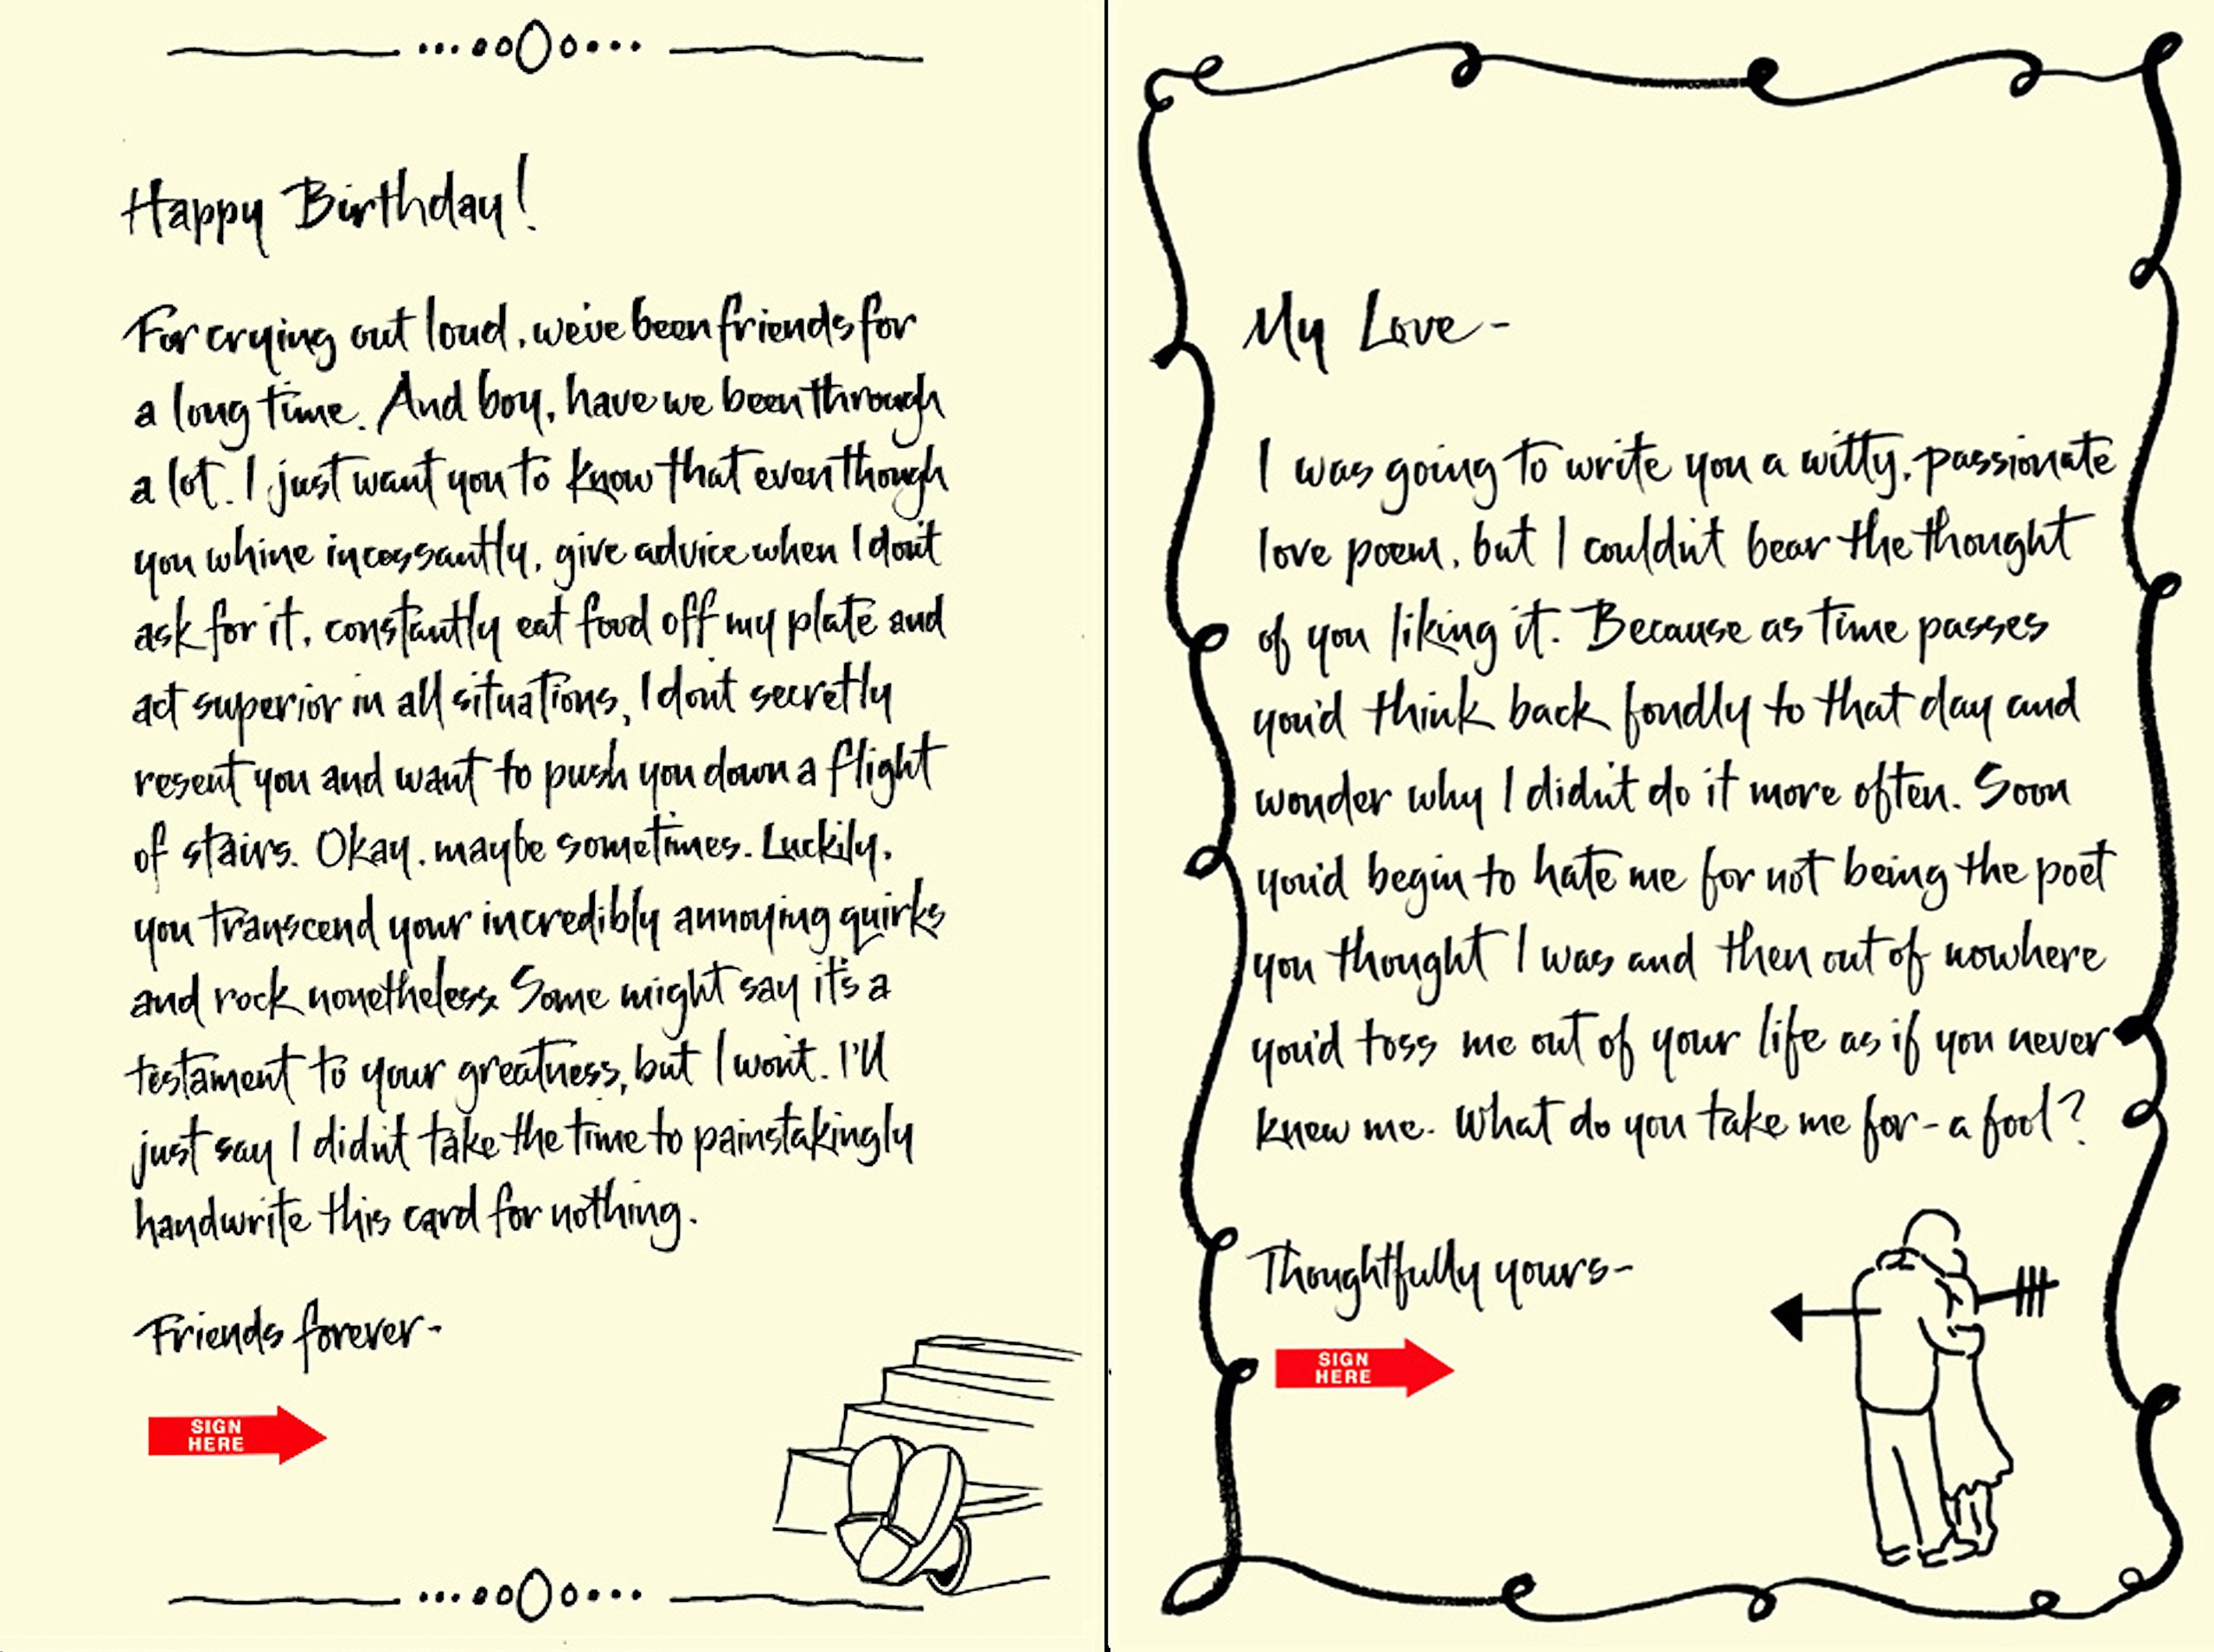 Happy Birthday!
For crying out loud, we've been friends for
a long time. And boy, have we been through
a lot. I just want you to know that even though
you whine incessantly, give advice when I don't
ask for it, constantly eat food off my plate and
act superior in all situations, I don't secretly
resent you and want to push you down a flight
of stairs. Okay, maybe sometimes. Luckily,
you transcend your incredibly annoying quirks
and rock nonetheless. Some might say it's a
testament to your greatness, but I won't. I'll
just say I didn't take the time to painstakingly
handwrite this card for nothing.
Friends forever-
SIGN
HERE
My Love-
I was going to write you a witty, passionate
love poem, but I couldn't bear the thought
of you liking it. Because as time passes
you'd think back fondly to that day and
wonder why I didn't do it more often. Soon
you'd begin to hate me for not being the poet
you thought I was and then out of nowhere
you'd toss me out of your life as if you never
knew me. What do you take me for-a fool?
Thoughtfully yours-
SIGN
HERE